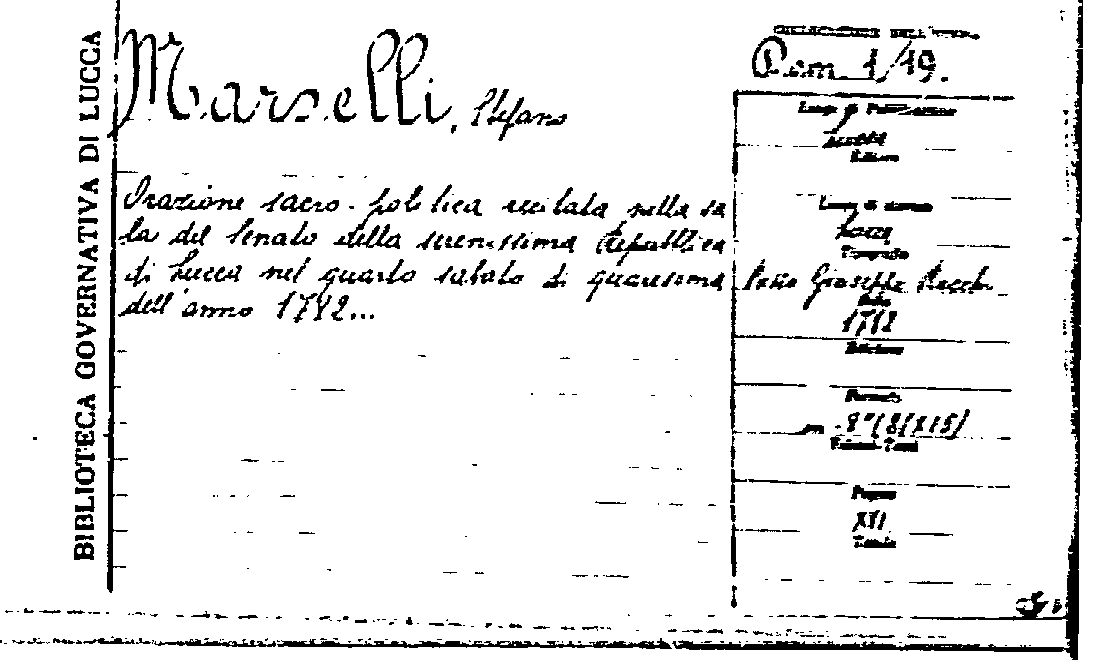 BIBLIOTECA GOVERNATIVA DI LUCCA
Marselli, Stefano
Orazione sacro-politica recitata nella sa
la del Senato della serenissima Repubblica
di Lucca nel quarto sabato di quaresima
dell'anno
COLLOCAZIONE DELL'OPERA
1/19.
Luogo di Pubblicazione
Lucca
Editore
Luogo di stampa
Lucca
Tipografo
Giuseppe Rocchi
Data
Edizione
Formato
Volumi-Tomi
Pagine
XVI
Tavole